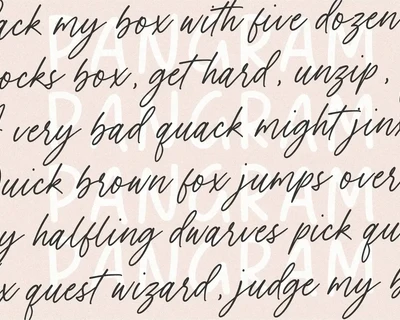 ack my box with five dozen
PANGRAM
ocks box, get hard, unzip,
PANGRAM
very bad quack might jinx
Quick brown fox jumps over
PANGRAM
y halfling dwarves pick qu
PANGRAM
x quest wizard, judge my b